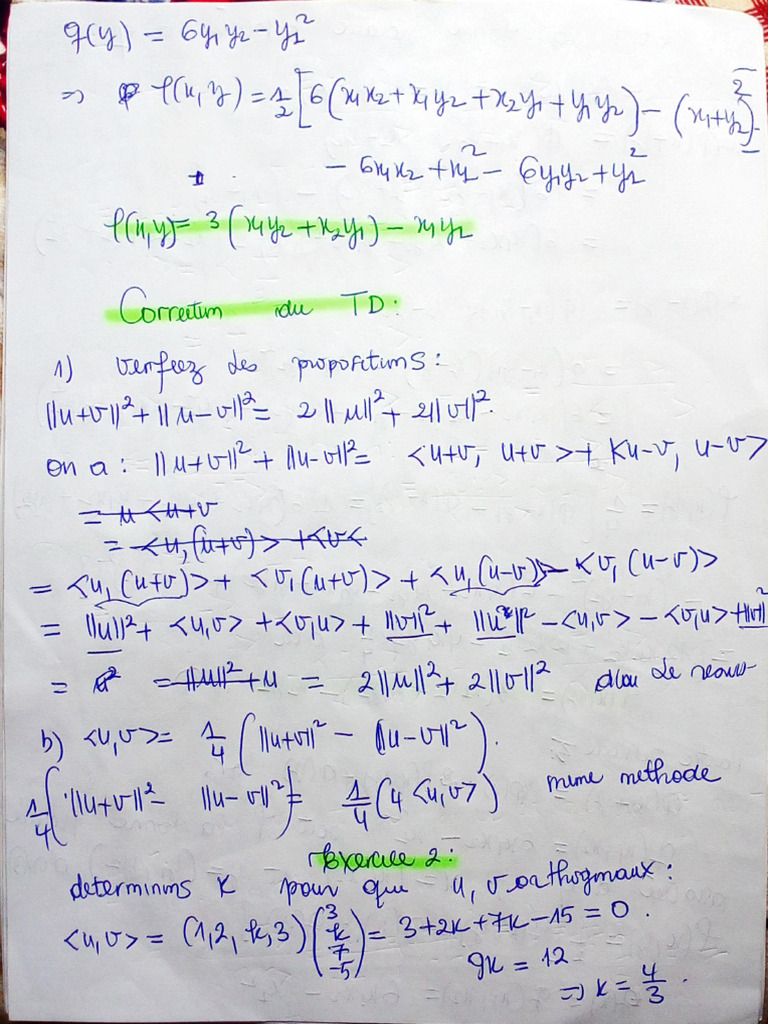 q(y) = 6y₁y₂ - y₂²
⇒ φ(x, y) = 1/2 [6(x₁x₂ + x₁y₂ + x₂y₁ + y₁y₂) - (x₁+y₂)² -
- 6x₁x₂ + x₂² - 6y₁y₂ + y₂²
φ(x,y) = 3(x₁y₂ + x₂y₁) - x₁y₂
Correction du TD:
1) verfiez des propositions:
||u+v||² + ||u-v||² = 2||u||² + 2||v||².
on a: ||u+v||² + ||u-v||² = <u+v, u+v> + <u-v, u-v>
= <u,(u+v)> + <v,(u+v)> + <u,(u-v)> - <v,(u-v)>
= ||u||² + <u,v> + <v,u> + ||v||² + ||u||² - <u,v> - <v,u> + ||v||²
= 2||u||² + 2||v||² d'ou le
b) <u,v> = 1/4 (||u+v||² - ||u-v||²).
1/4 (||u+v||² - ||u-v||²) = 1/4 (4 <u,v>) meme methode
Exercice 2:
determinins K pour que u, v orthogonaux:
<u,v> = (1,2, k,3) (3 k 7 -5) = 3+2k+7k-15 = 0.
9k = 12
⇒ k = 4/3.